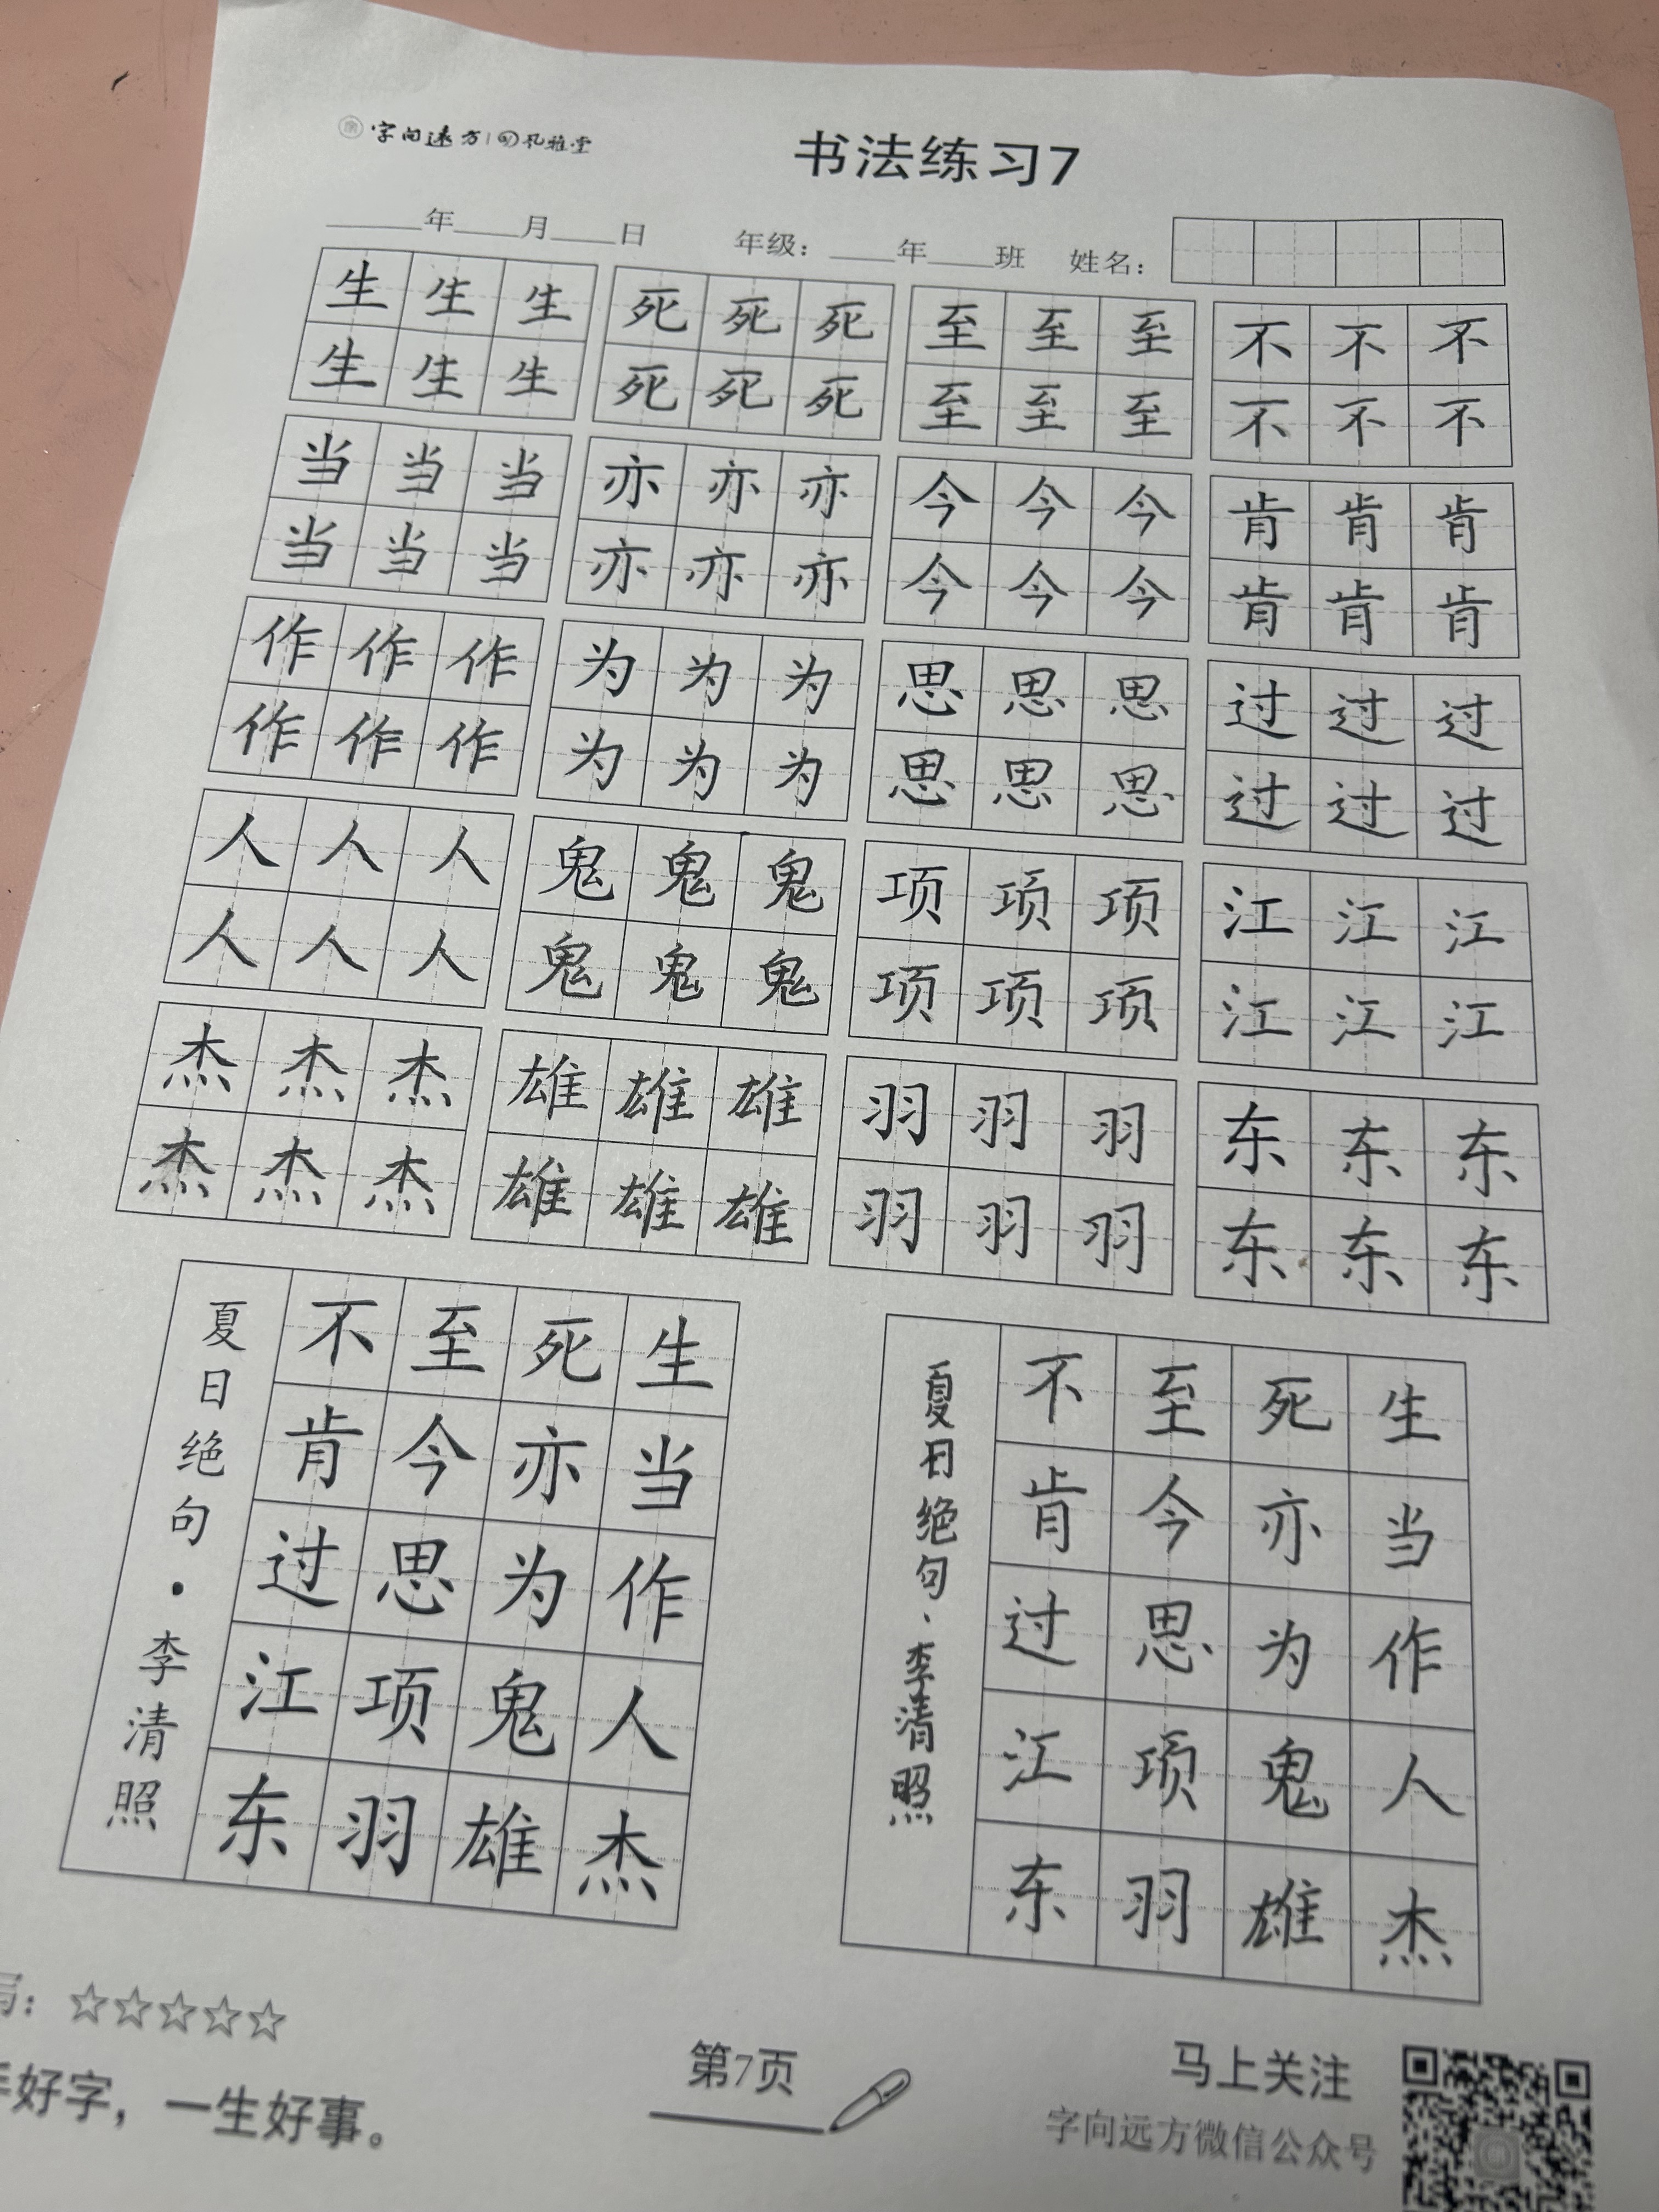 字向远方 孔雅堂
书法练习7
年 月 日 年级： 年 班 姓名：
生生生 死死死 至至至 不不不
生生生 死死死 至至至 不不不
当当当 亦亦亦 今今今 肯肯肯
当当当 亦亦亦 今今今 肯肯肯
作作作 为为为 思思思 过过过
作作作 为为为 思思思 过过过
人人人 鬼鬼鬼 项项项 江江江
人人人 鬼鬼鬼 项项项 江江江
杰杰杰 雄雄雄 羽羽羽 东东东
杰杰杰 雄雄雄 羽羽羽 东东东
生当作人杰
死亦为鬼雄
至今思项羽
不肯过江东
夏日绝句·李清照
生当作人杰
死亦为鬼雄
至今思项羽
不肯过江东
夏日绝句·李清照
写：☆☆☆☆☆
手好字，一生好事。
第7页
马上关注
字向远方微信公众号